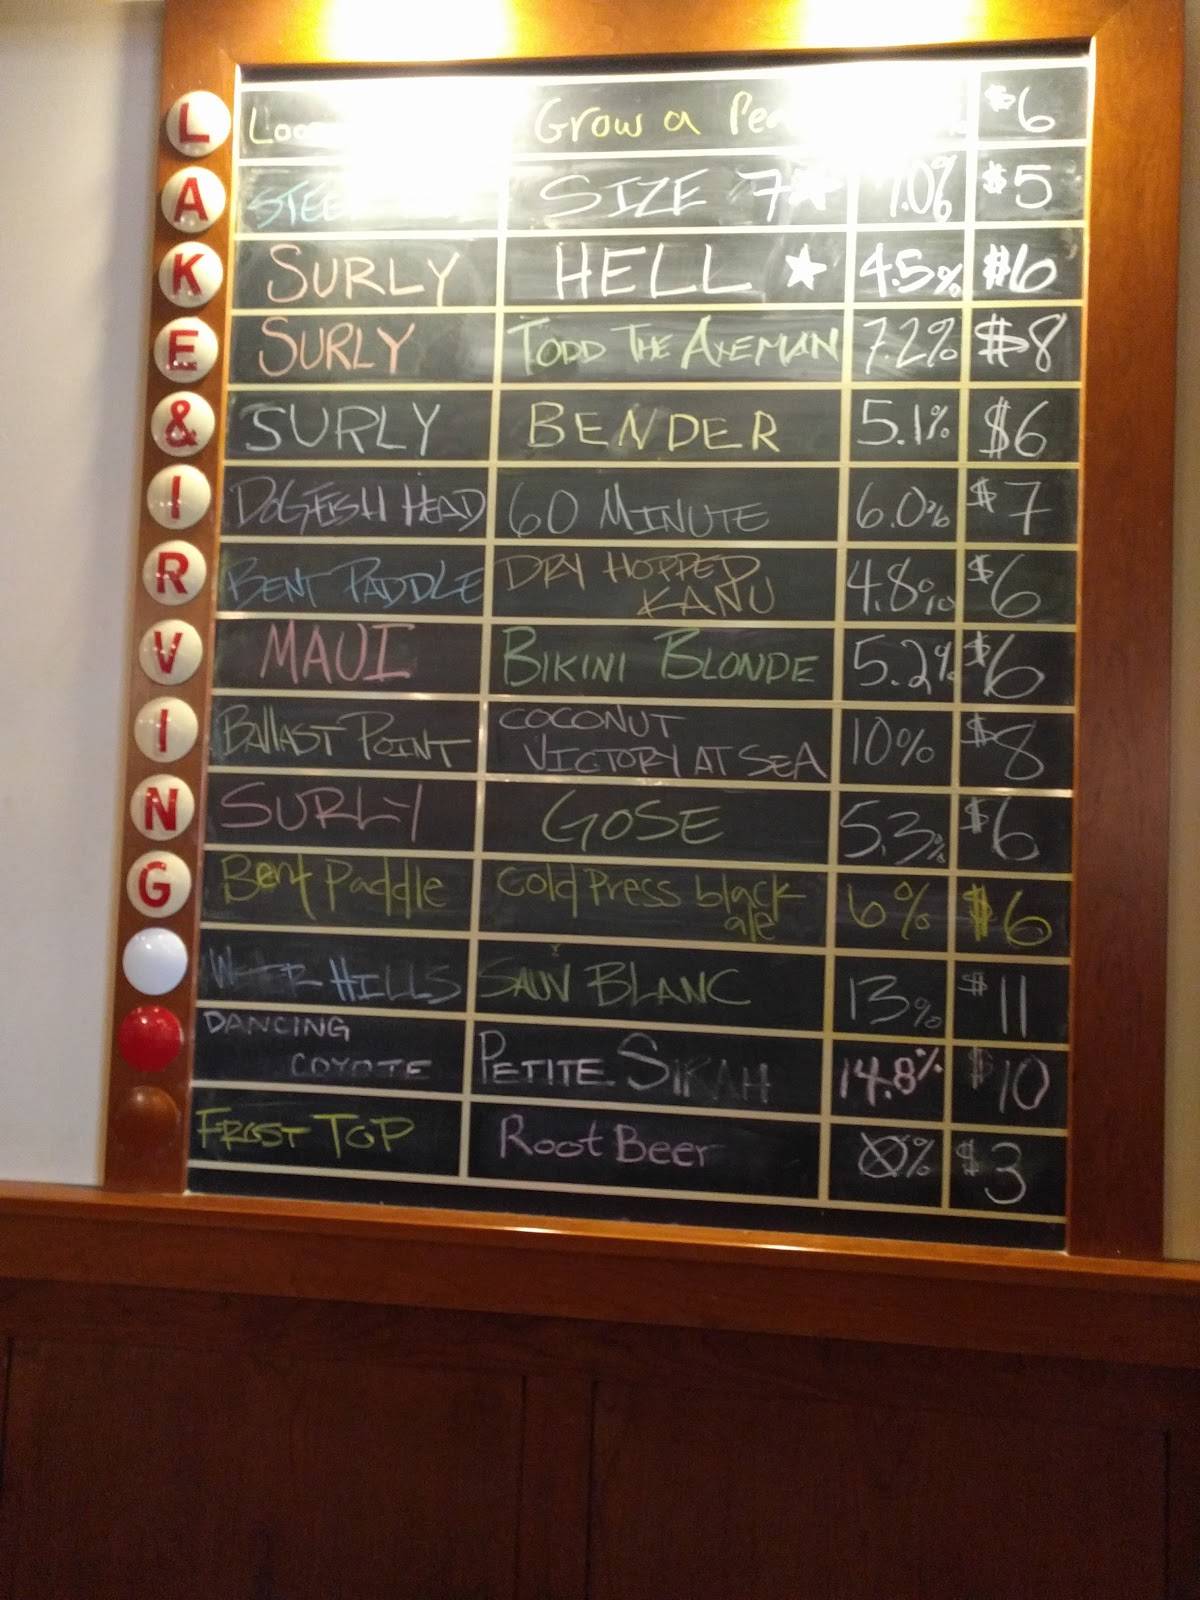 LAKE&IRVING
Grow a $6
SIZE 7 ★ 7.0% $5
SURLY HELL ★ 4.5% $6
SURLY TODD THE AXEMAN 7.2% $8
SURLY BENDER 5.1% $6
DOGFISH HEAD 60 MINUTE 6.0% $7
BENT PADDLE DRY HOPPED
KANU 4.8% $6
MAUI BIKINI BLONDE 5.2% $6
BALLAST POINT COCONUT
VICTORY AT SEA 10% $8
SURLY GOSE 5.3% $6
Bent Paddle Cold Press black
ale 6% $6
HILLS SAUV BLANC 13% $11
DANCING
COYOTE PETITE SIRAH 14.8% $10
FROST TOP Root Beer 0% $3